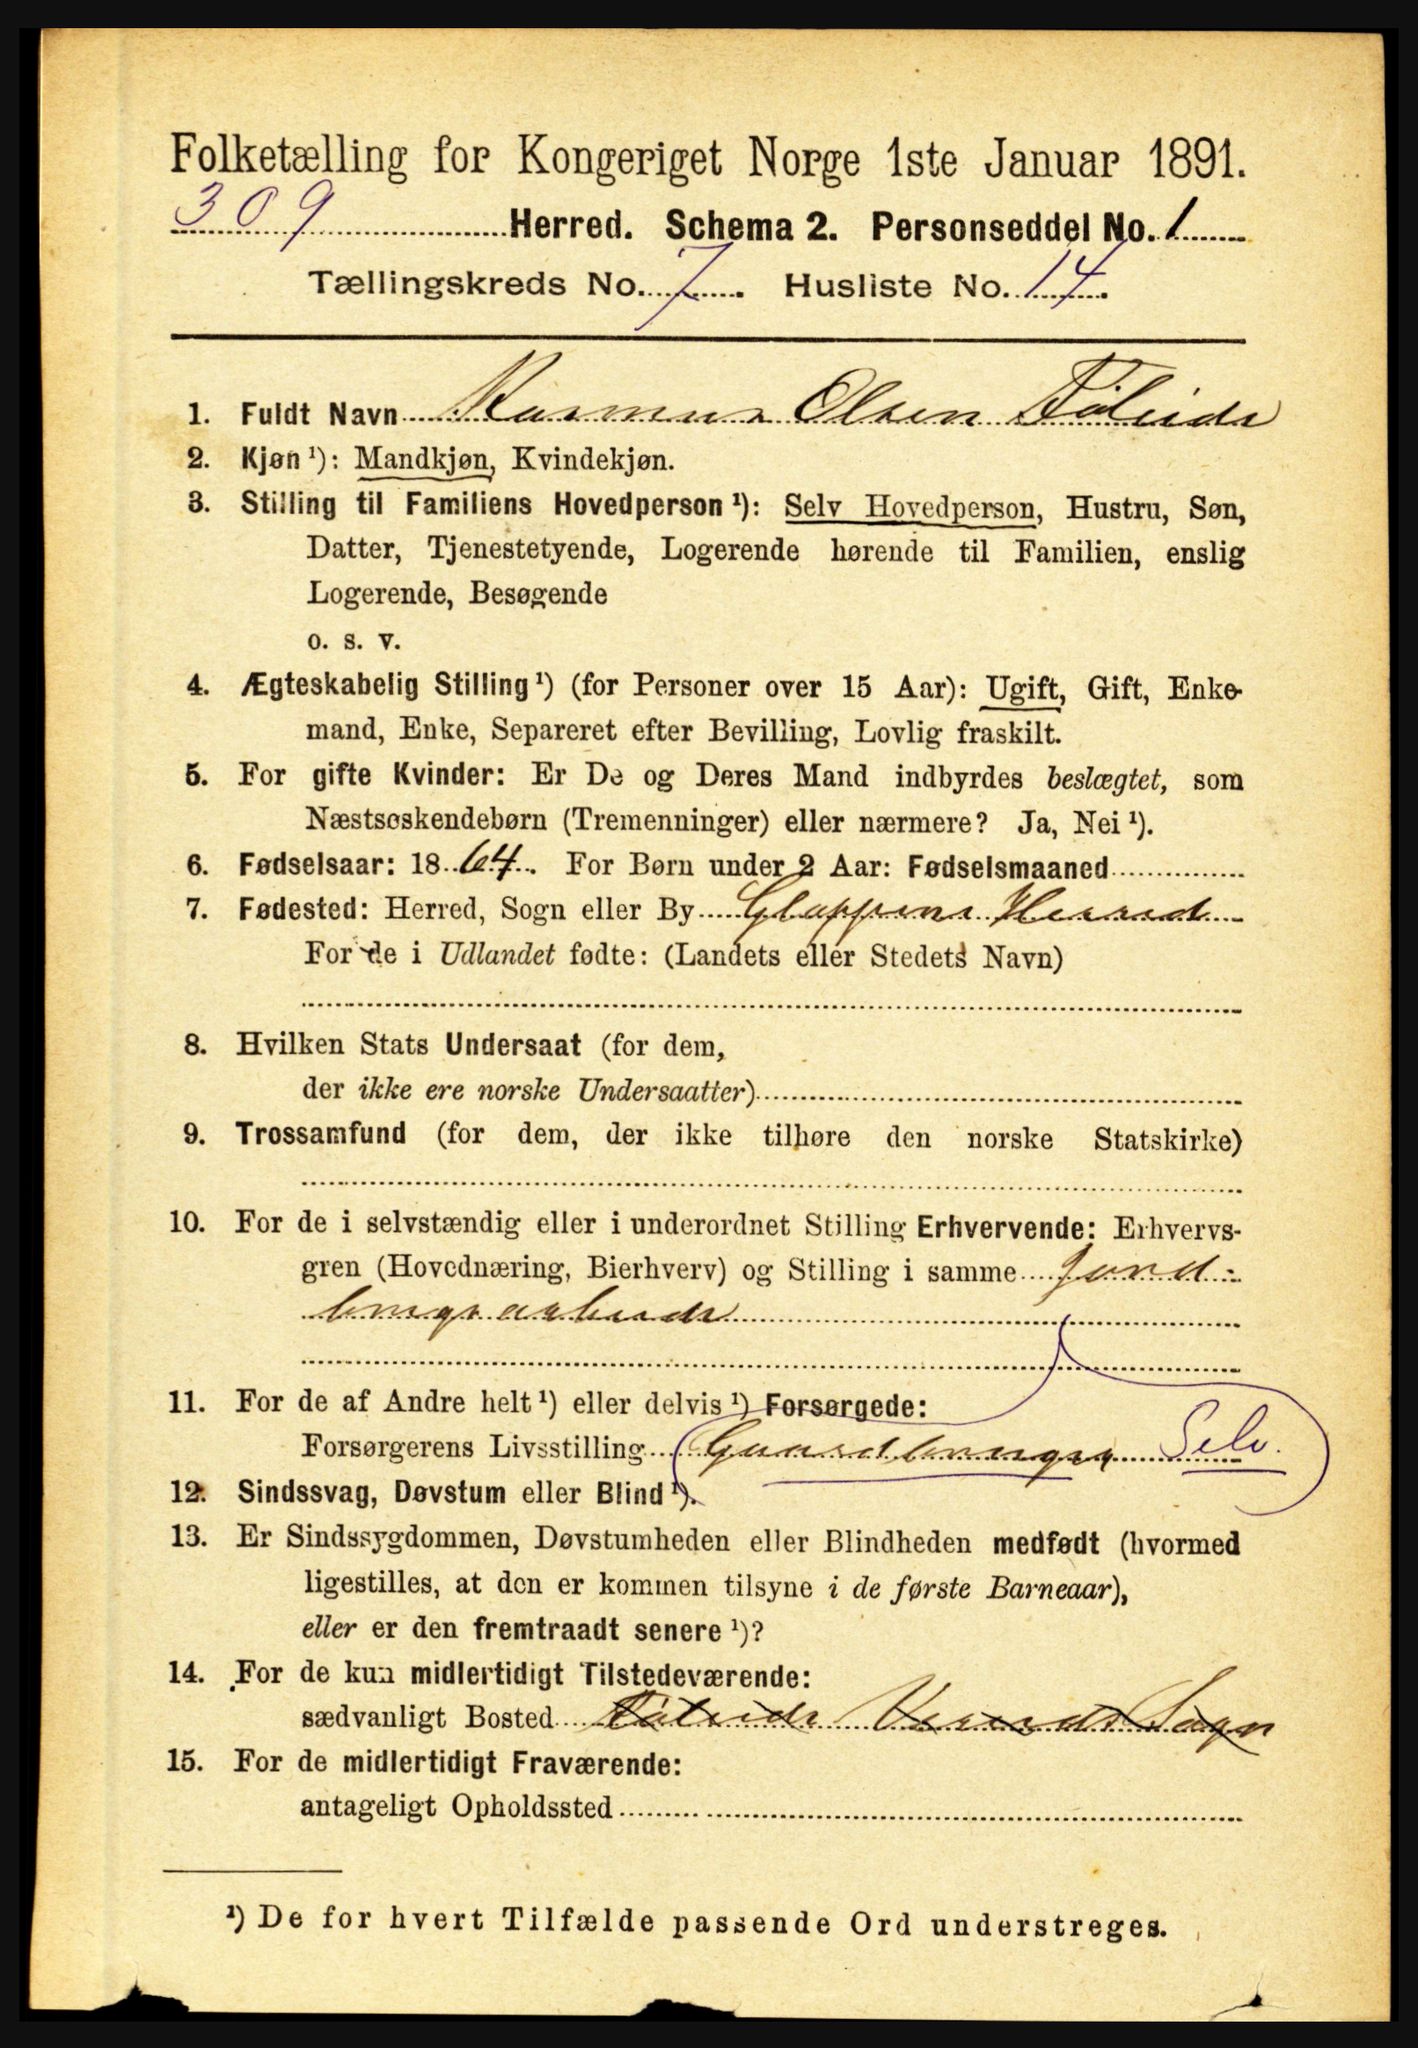 Folketælling for Kongeriget Norge 1ste Januar 1891.
309 Herred. Schema 2. Personseddel No. 1
Tællingskreds No. 7. Husliste No. 14.
1. Fuldt Navn Rasmus Olsen
2. Kjøn ¹): Mandkjøn, Kvindekjøn.
3. Stilling til Familiens Hovedperson ¹): Selv Hovedperson, Hustru, Søn,
Datter, Tjenestetyende, Logerende hørende til Familien, enslig
Logerende, Besøgende
o. s. v.
4. Ægteskabelig Stilling ¹) (for Personer over 15 Aar): Ugift, Gift, Enke-
mand, Enke, Separeret efter Bevilling, Lovlig fraskilt.
5. For gifte Kvinder: Er De og Deres Mand indbyrdes beslægtet, som
Næstsøskendebørn (Tremenninger) eller nærmere? Ja, Nei ¹).
6. Fødselsaar: 1864. For Børn under 2 Aar: Fødselsmaaned
7. Fødested: Herred, Sogn eller By Gloppens Herred
For de i Udlandet fødte: (Landets eller Stedets Navn)
8. Hvilken Stats Undersaat (for dem,
der ikke ere norske Undersaatter)
9. Trossamfund (for dem, der ikke tilhøre den norske Statskirke)
10. For de i selvstændig eller i underordnet Stilling Erhvervende: Erhvervs-
gren (Hovednæring, Bierhverv) og Stilling i samme Jord-
brugsarbeide
11. For de af Andre helt ¹) eller delvis ¹) Forsørgede:
Forsørgerens Livsstilling Gaardbruger Selv.
12. Sindssvag, Døvstum eller Blind ¹).
13. Er Sindssygdommen, Døvstumheden eller Blindheden medfødt (hvormed
ligestilles, at den er kommen tilsyne i de første Barneaar),
eller er den fremtraadt senere ¹)?
14. For de kun midlertidigt Tilstedeværende:
sædvanligt Bosted Sogn
15. For de midlertidigt Fraværende:
antageligt Opholdssted
¹) De for hvert Tilfælde passende Ord understreges.